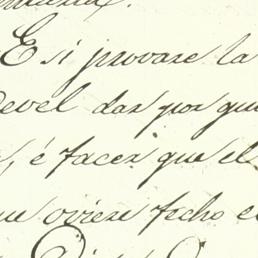 E si provare la
devel dar por qui
é facer que el
que oviere fecho e